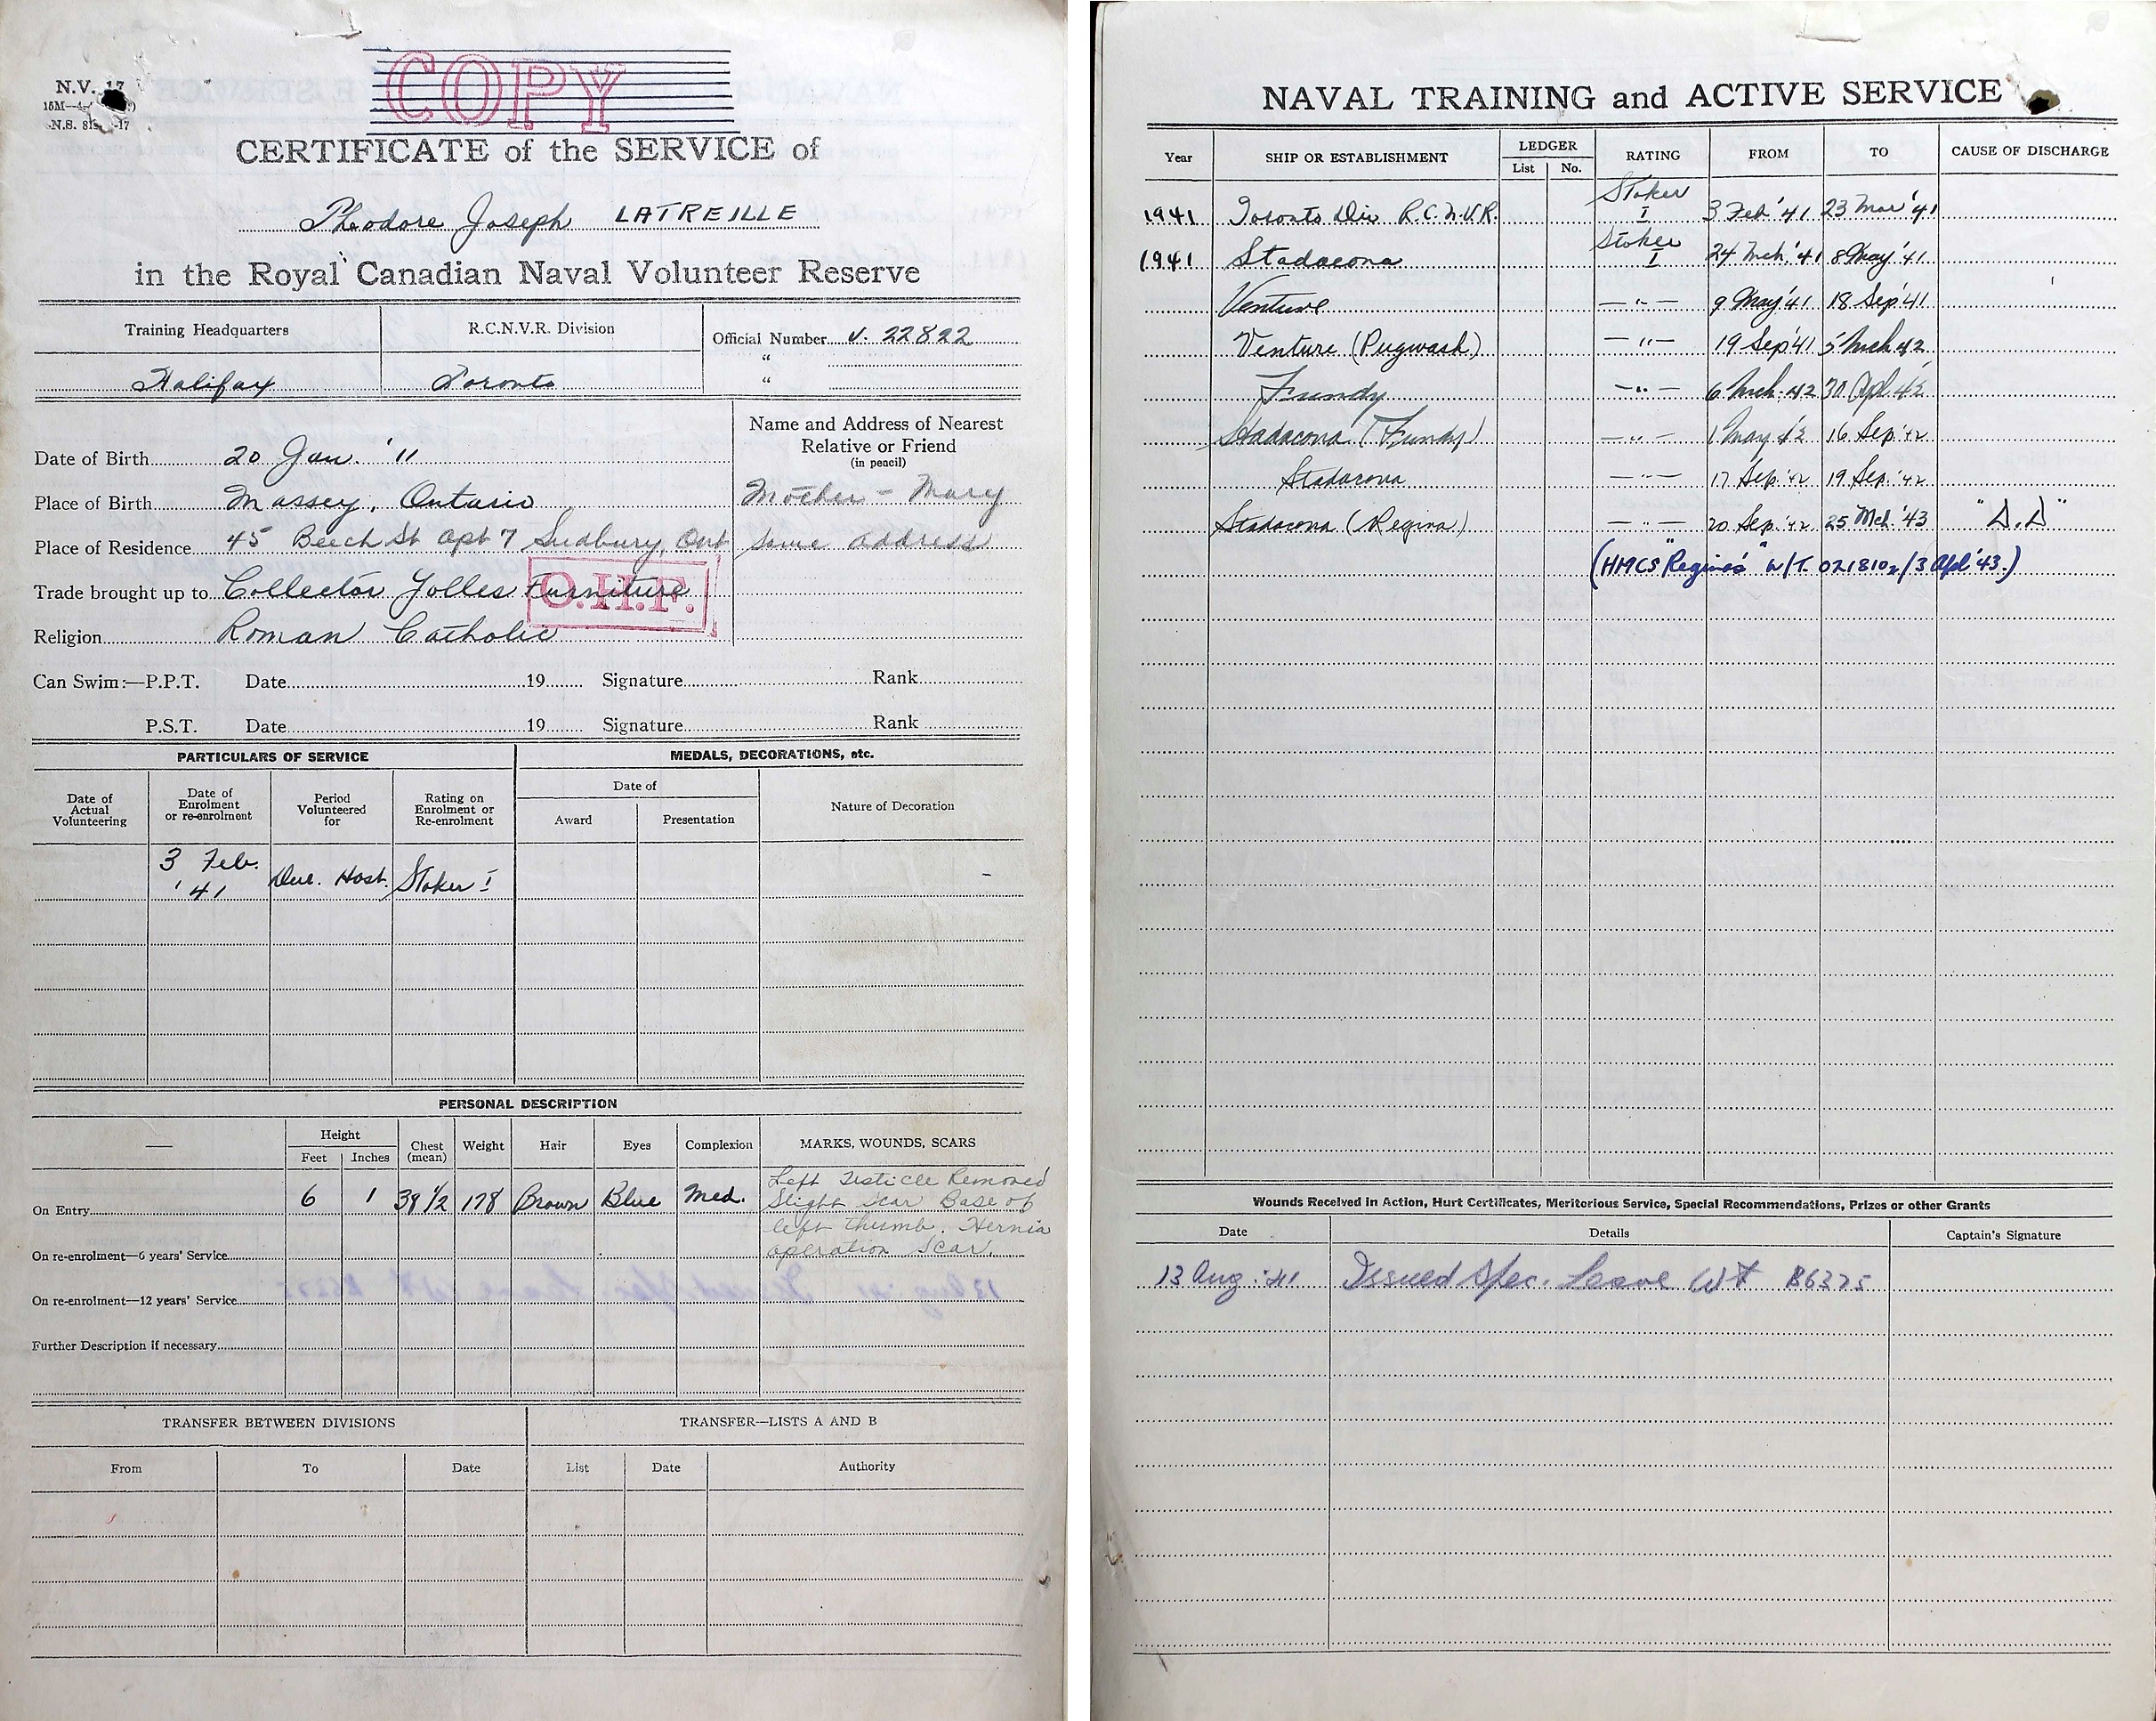 COPY
N.V. 17
15M—4
N.S. 815 -17
CERTIFICATE of the SERVICE of
Theodore Joseph LATREILLE
in the Royal Canadian Naval Volunteer Reserve
Training Headquarters R.C.N.V.R. Division Official Number V. 22822
"
Halifax Toronto "
Name and Address of Nearest
Relative or Friend
(in pencil)
Date of Birth 20 Jan. '11
Place of Birth Massey, Ontario Mother - Mary
Place of Residence 45 Beech St apt 7 Sudbury, Ont same address
Trade brought up to Collector Yolles Furniture
O.H.F.
Religion Roman Catholic
Can Swim:—P.P.T. Date 19 Signature Rank
P.S.T. Date 19 Signature Rank
PARTICULARS OF SERVICE MEDALS, DECORATIONS, etc.
Date of Actual Volunteering Date of Enrolment or re-enrolment Period Volunteered for Rating on Enrolment or Re-enrolment Date of Nature of Decoration
Award Presentation
3 Feb. '41 Dur. Host. Stoker I
PERSONAL DESCRIPTION
Height Chest (mean) Weight Hair Eyes Complexion MARKS, WOUNDS, SCARS
Feet Inches
On Entry 6 1 38 1/2 178 Brown Blue Med. Left Testicle Removed
Slight scar Base of
left thumb. Hernia
operation scar.
On re-enrolment—6 years' Service
On re-enrolment—12 years' Service
Further Description if necessary
TRANSFER BETWEEN DIVISIONS TRANSFER—LISTS A AND B
From To Date List Date Authority
NAVAL TRAINING and ACTIVE SERVICE
Year SHIP OR ESTABLISHMENT LEDGER RATING FROM TO CAUSE OF DISCHARGE
List No.
1941 Toronto Div R.C.N.V.R. Stoker I 3 Feb '41 23 Mar '41
1941 Stadacona Stoker I 24 Mch. '41 8 May '41
Venture —"— 9 May '41 18 Sep '41
Venture (Pugwash) —"— 19 Sep '41 5 Mch 42
Fundy —"— 6 Mch. 42 30 Apl 42
Stadacona (Fundy) —"— 1 May 42 16 Sep '42
Stadacona —"— 17 Sep. '42 19 Sep. '42
Stadacona (Regina) —"— 20 Sep. '42 25 Mch. '43 "D.D"
(HMCS "Regina's" W/T. 021810z/3 Apl '43.)
Wounds Received in Action, Hurt Certificates, Meritorious Service, Special Recommendations, Prizes or other Grants
Date Details Captain's Signature
13 Aug. '41 Issued Spec. Leave Wt B6375